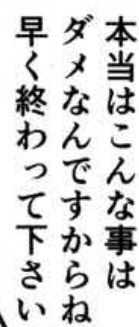 本当はこんな事は
ダメなんですからね
早く終わって下さい